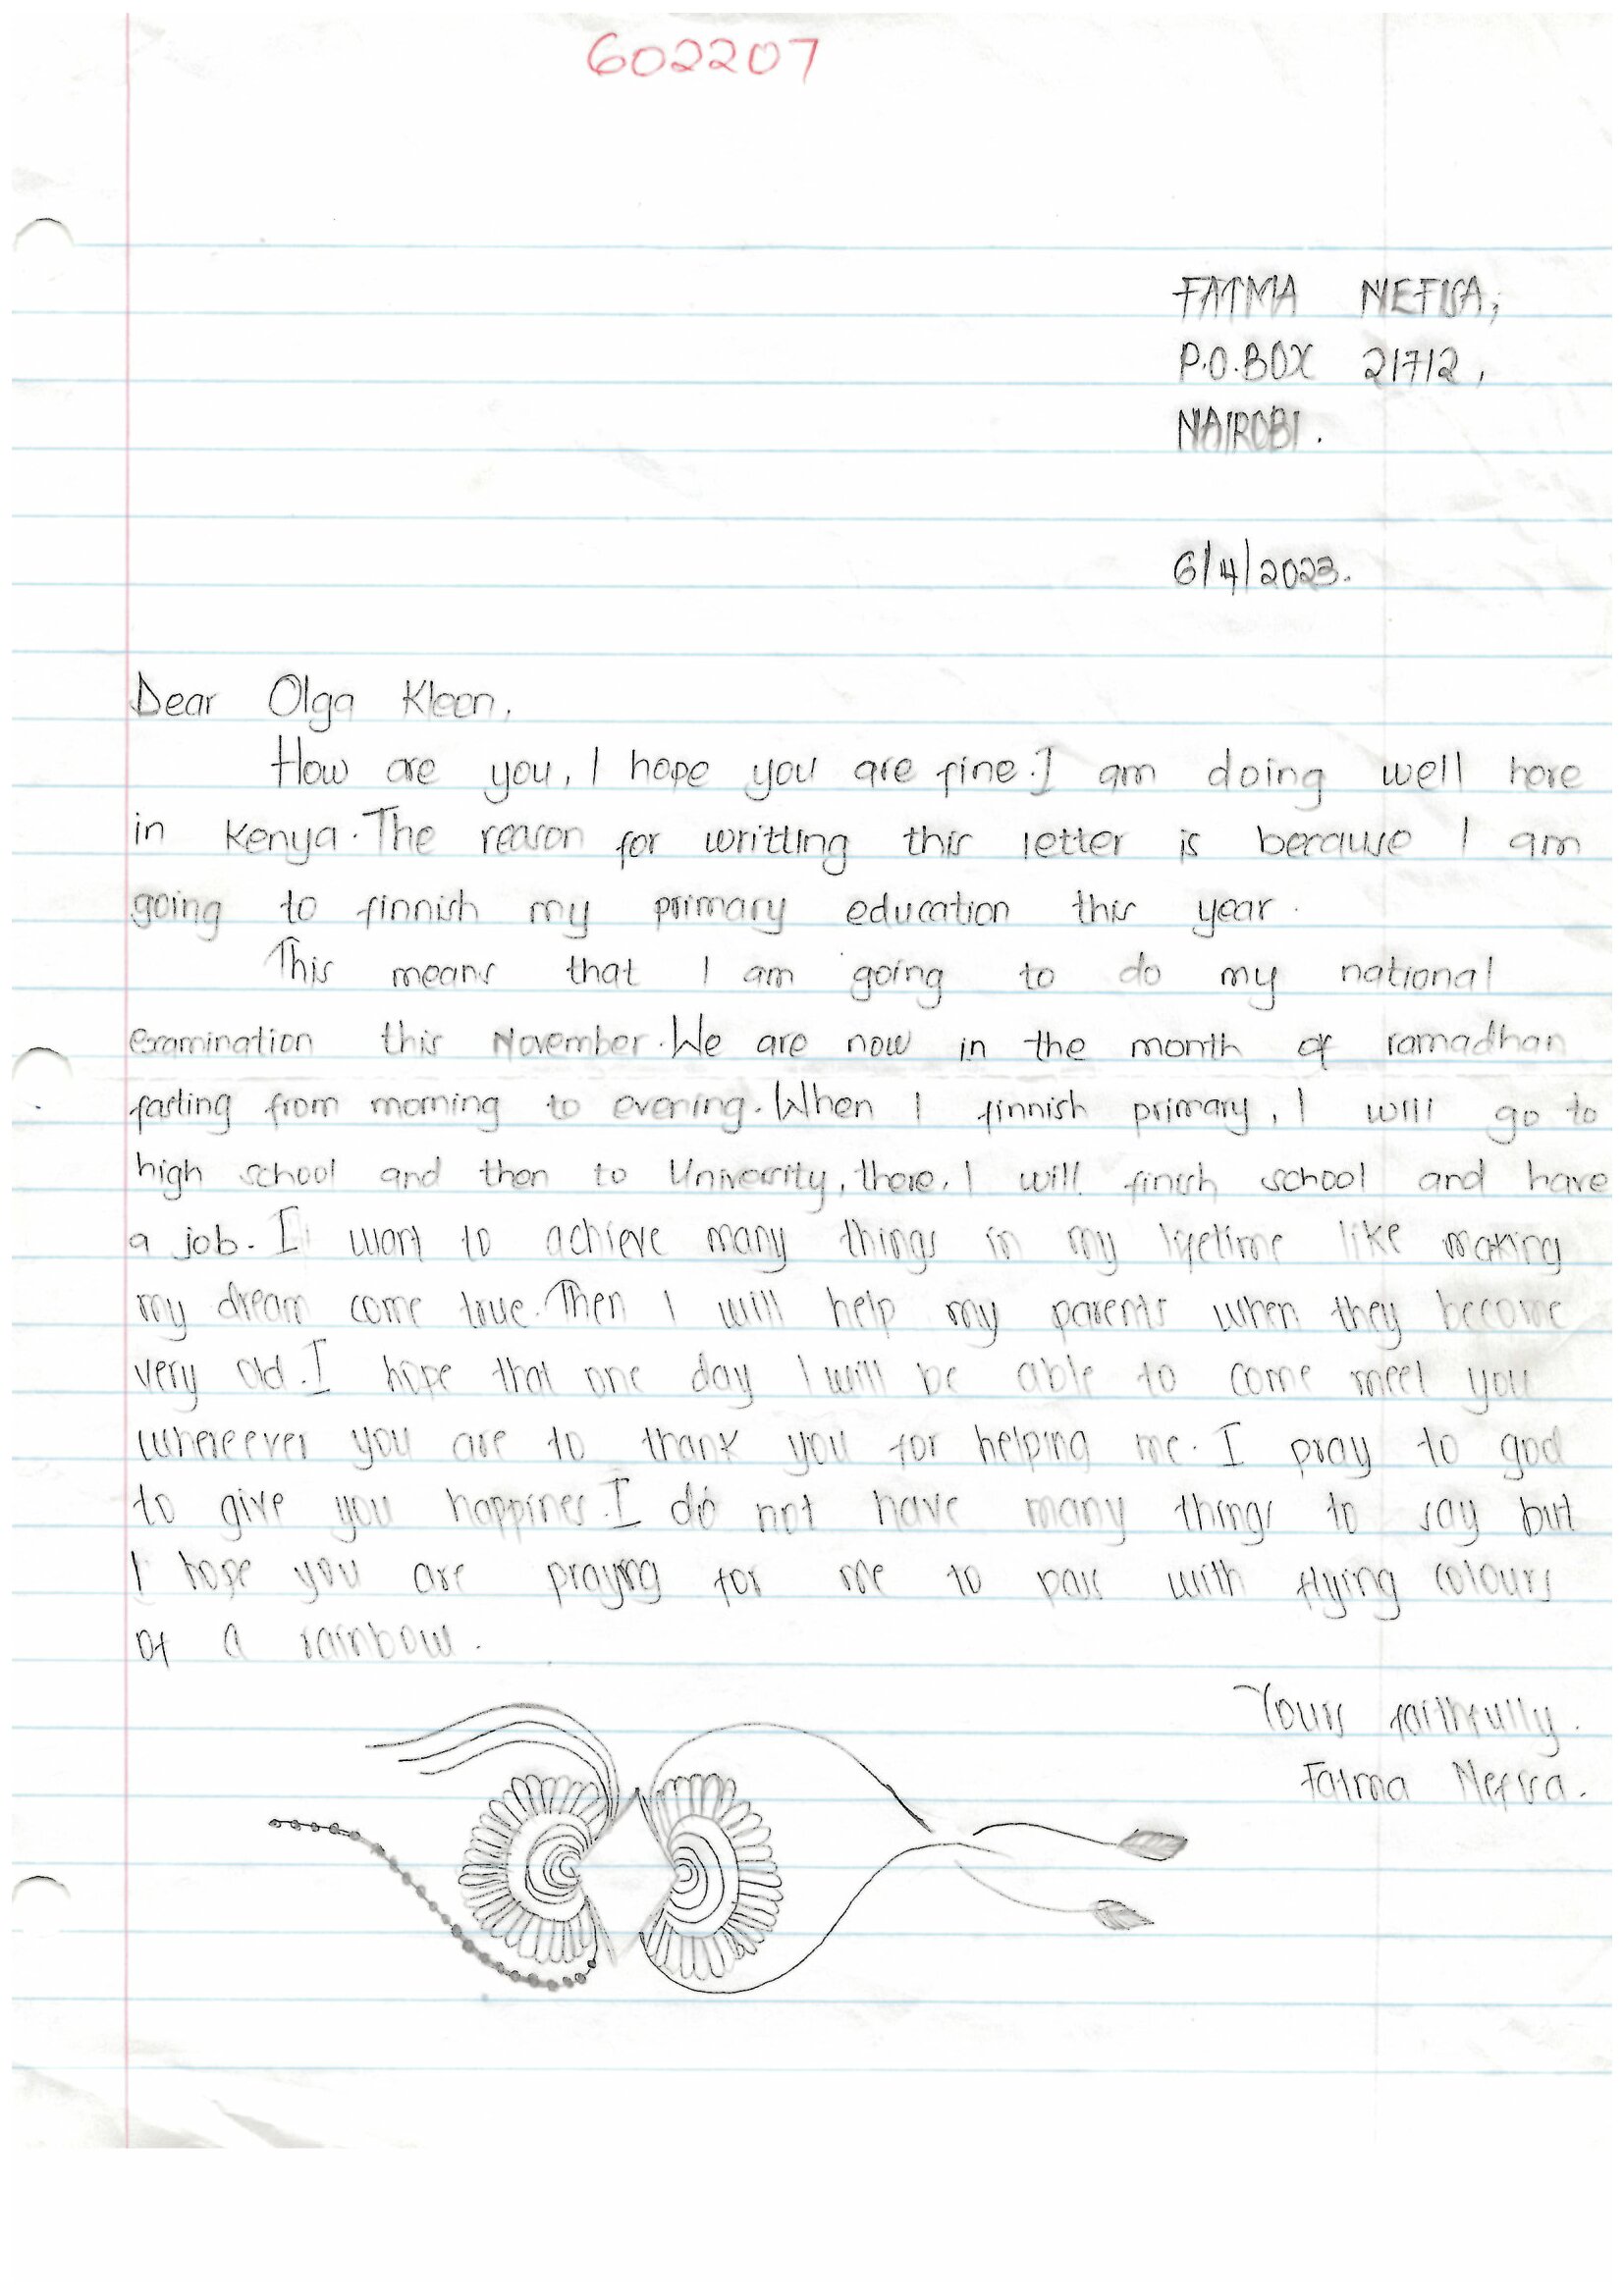 602207
FATMA NEFISA,
P.O.BOX 21712,
NAIROBI.
6/4/2023.
Dear Olga Kleen,
How are you, I hope you are fine. I am doing well here
in Kenya. The reason for writting this letter is because I am
going to finnish my primary education this year.
This means that I am going to do my national
examination this November. We are now in the month of ramadhan
fasting from morning to evening. When I finnish primary, I will go to
high school and then to University, there, I will finish school and have
a job. I want to achieve many things in my lifetime like making
my dream come true. Then I will help my parents when they become
very old. I hope that one day I will be able to come meet you
whereever you are to thank you for helping me. I pray to god
to give you happines. I do not have many things to say but
I hope you are praying for me to pass with flying colours
of a rainbow.
Yours faithfully.
Fatma Nefisa.